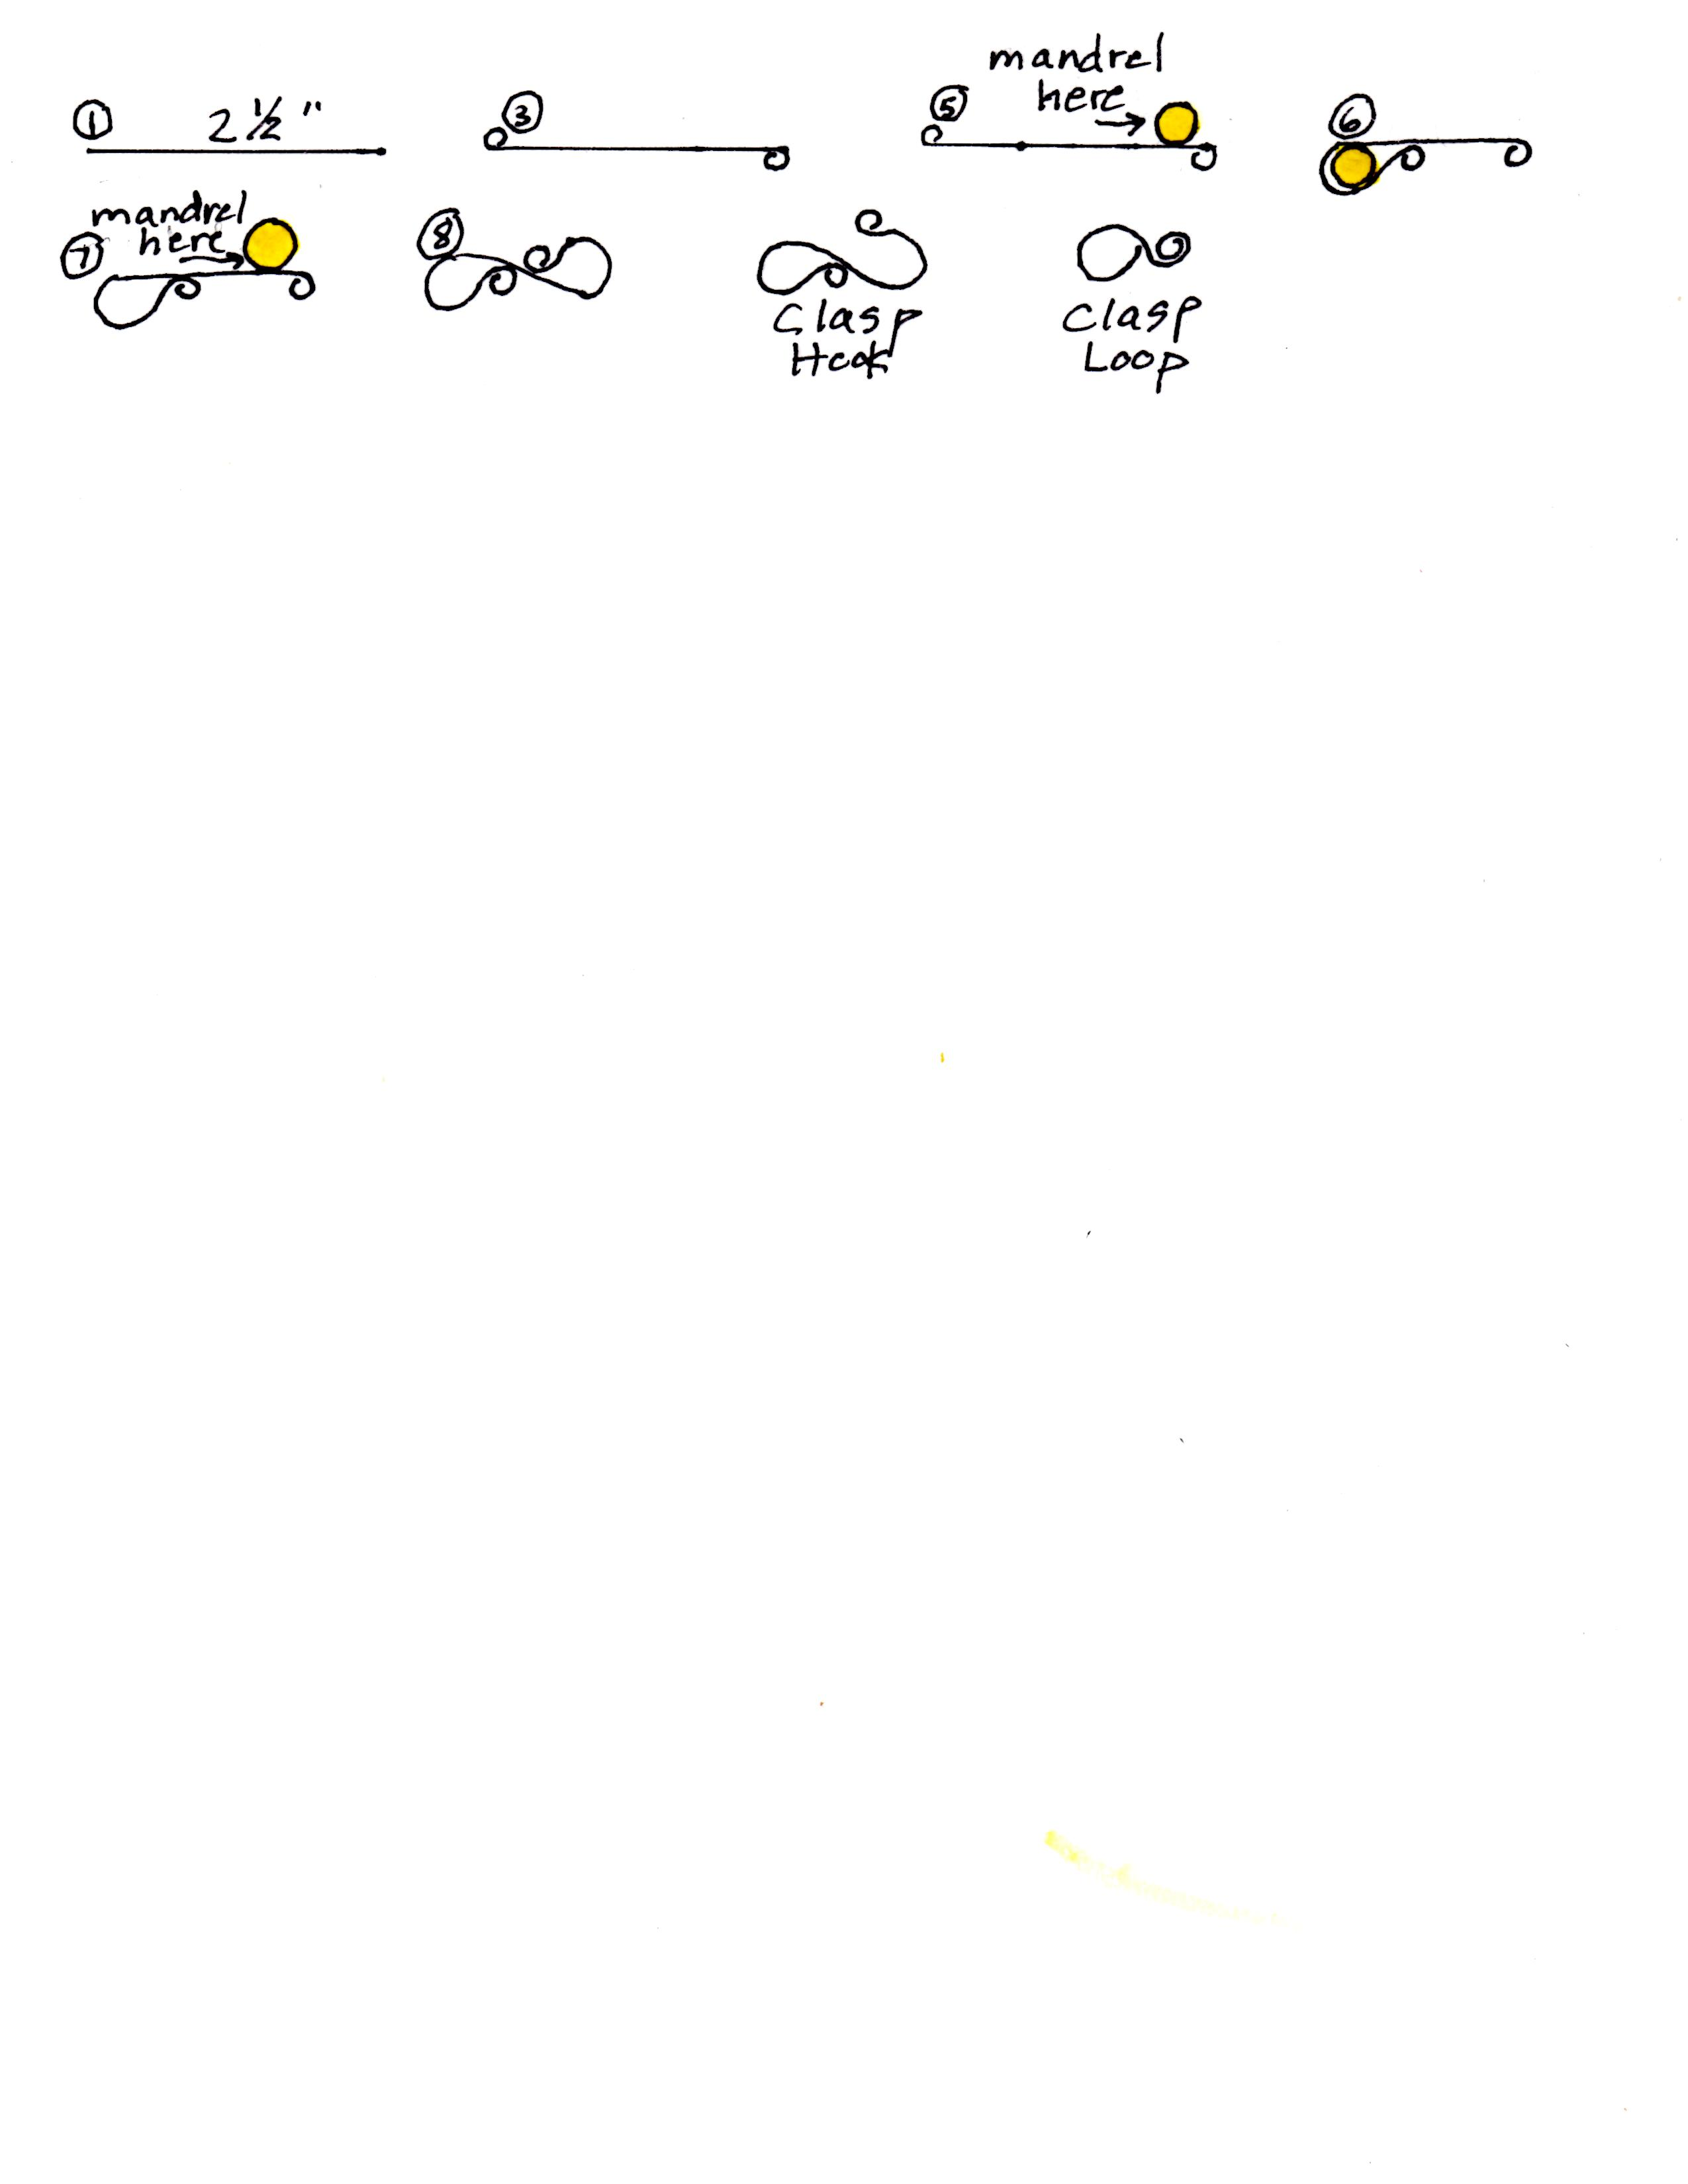 ① 2 ½ "
③
mandrel
here
⑤
⑥
mandrel
here
⑦
⑧
Clasp
Hook
Clasp
Loop